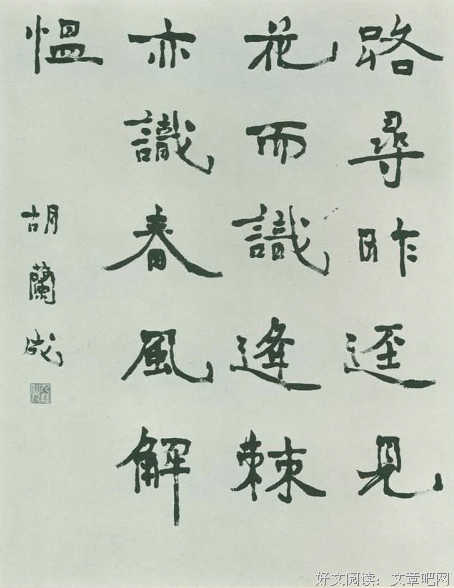 路尋昨逕見
花而識逢棘
亦識春風解
愠
胡蘭成
好文阅读：文章吧网